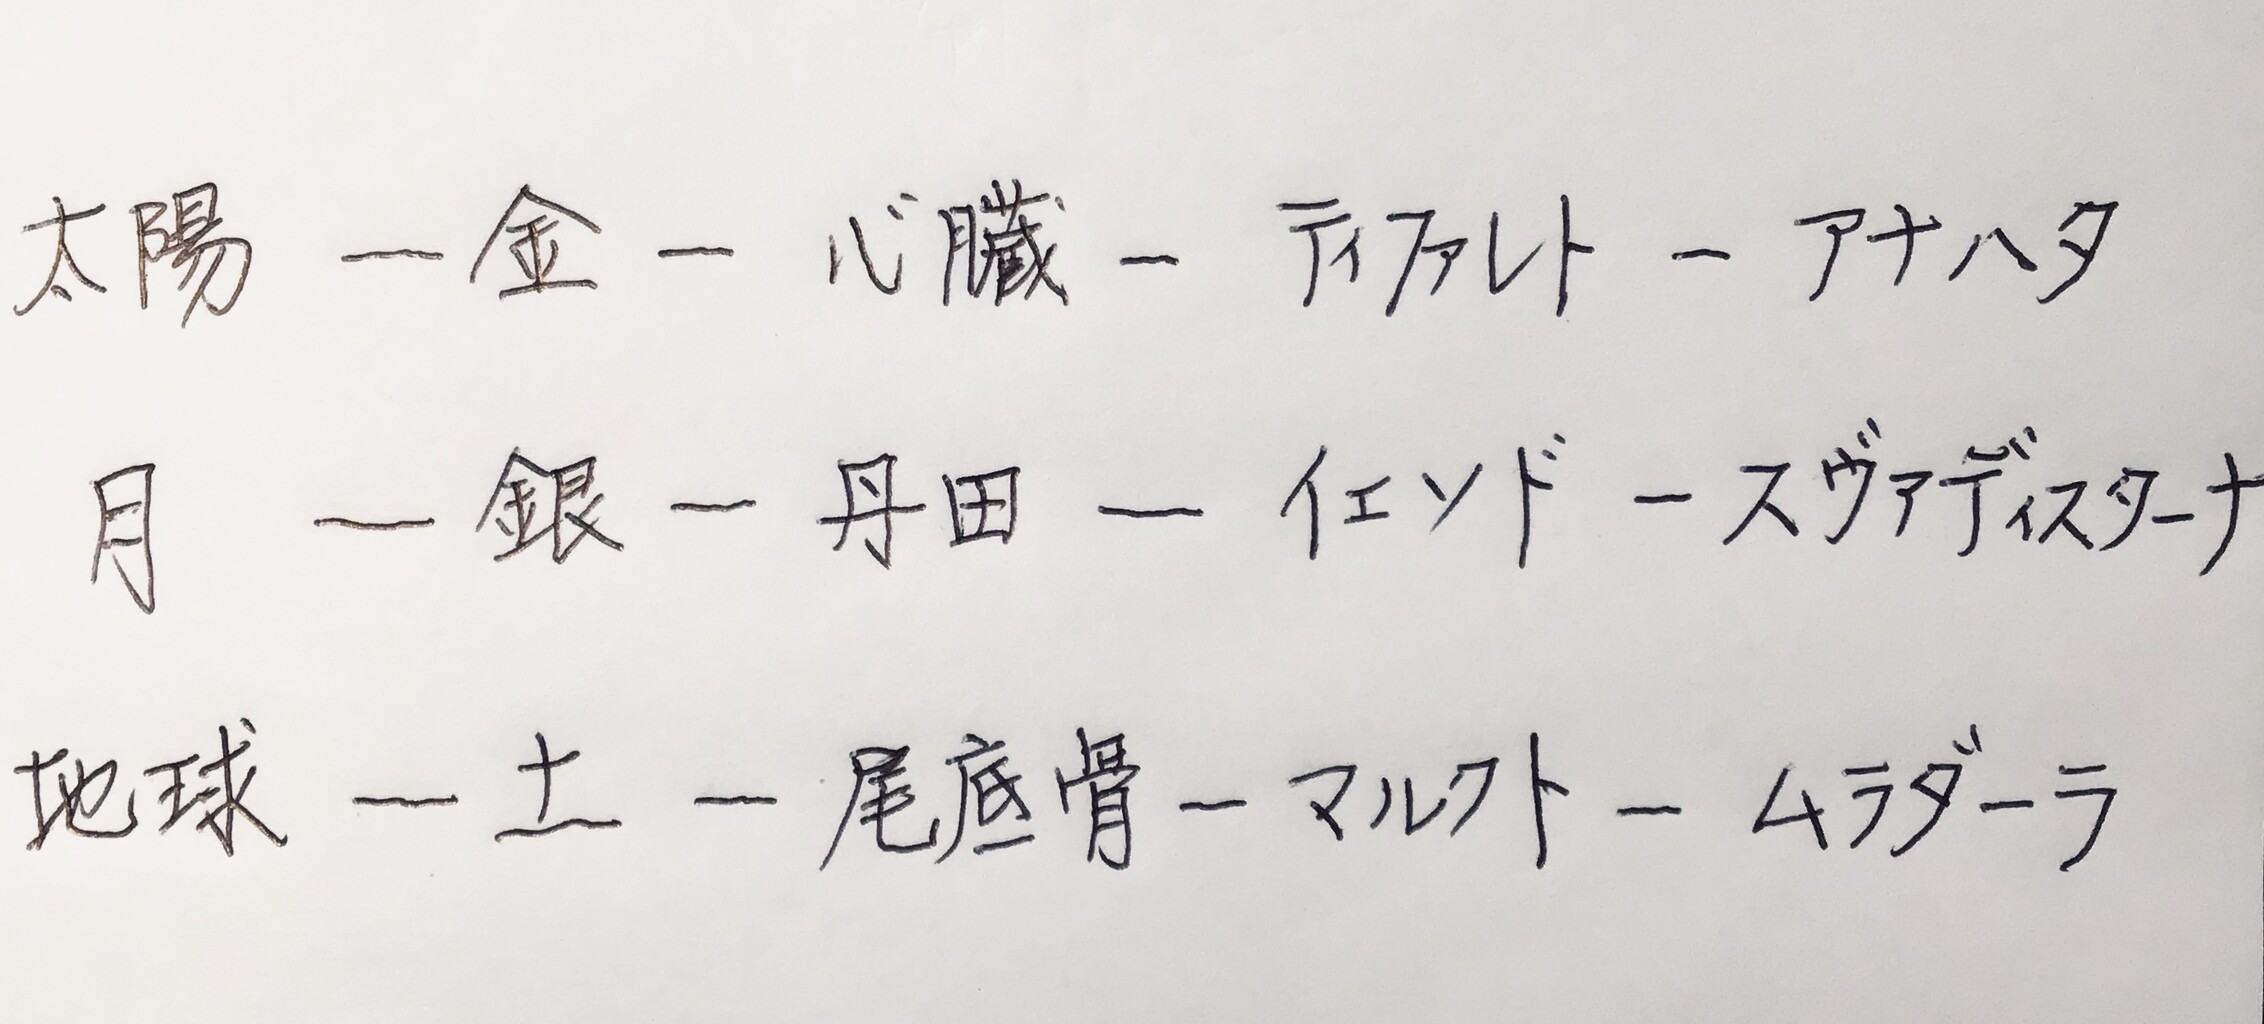 太陽 ー 金 ー 心臓 ー ティファレト ー アナハタ
月 ー 銀 ー 丹田 ー イェソド ー スヴァディスターナ
地球 ー 土 ー 尾底骨 ー マルクト ー ムラダーラ